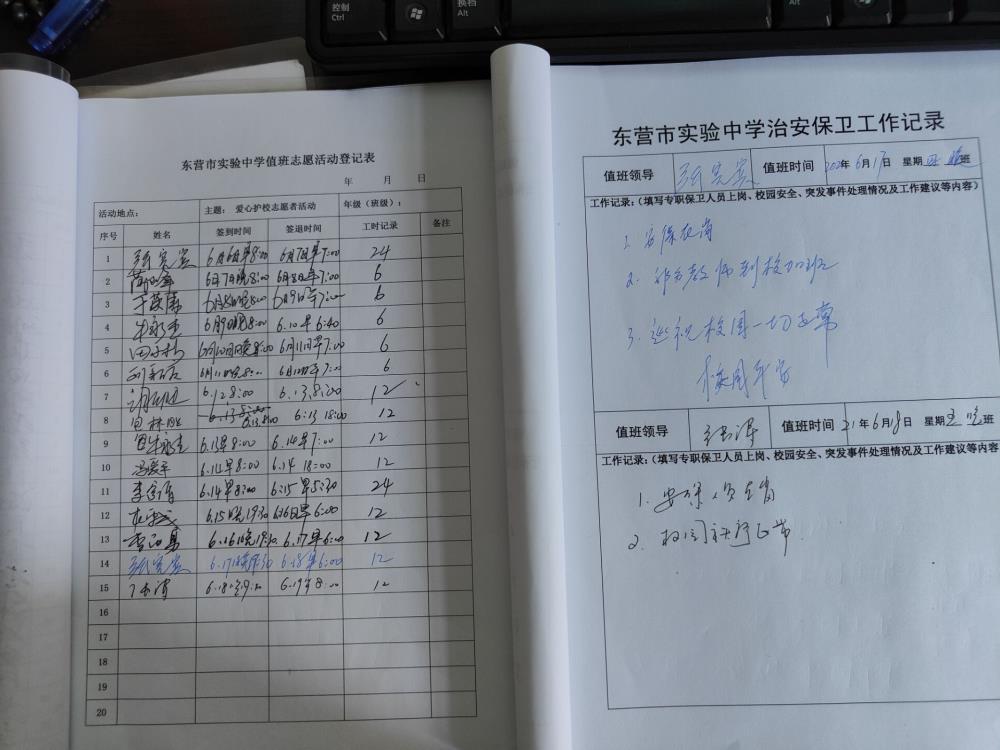 控制
Ctrl
换档
Alt
Alt
东营市实验中学值班志愿活动登记表
年 月 日
活动地点： 主题： 爱心护校志愿者活动 年级（班级）：
序号 姓名 签到时间 签退时间 工时记录 备注
1 6月6日早8:00 6月7日早7:00 24
2 6月7日晚8:00 6月8日早7:00 6
3 6月8日晚8:00 6月9日早7:00 6
4 6月9日晚8:00 6.10早6:40 6
5 6月10日晚8:00 6月11日早7:00 6
6 6月11日晚8:00 6月12日早7:00 6
7 6.12 8:00 6.13 8:00 12
8 6.13 8:00 6.13 18:00 12
9 6.13早8:00 6.14早7:00 12
10 冯爱平 6.14早8:00 6.14 18:00 12
11 6.14早8:00 6.15早5:30 24
12 6.15晚19:30 6.16日早6:00 12
13 6.16晚19:30 6.17早6:00 12
14 张宪宾 6.17 6.18早6:00 12
15 6.18 6.19早8:00 12
16
17
18
19
20
东营市实验中学治安保卫工作记录
值班领导 张宪宾 值班时间 2021年6月17日 星期四 晚班
工作记录：（填写专职保卫人员上岗、校园安全、突发事件处理情况及工作建议等内容）
1. 安保在岗
2. 部分教师到校加班
3. 巡视校园一切正常
校园平安
值班领导 值班时间 21年6月18日 星期五 晚班
工作记录：（填写专职保卫人员上岗、校园安全、突发事件处理情况及工作建议等内容
1. 安保人员在岗
2. 校园秩序正常.